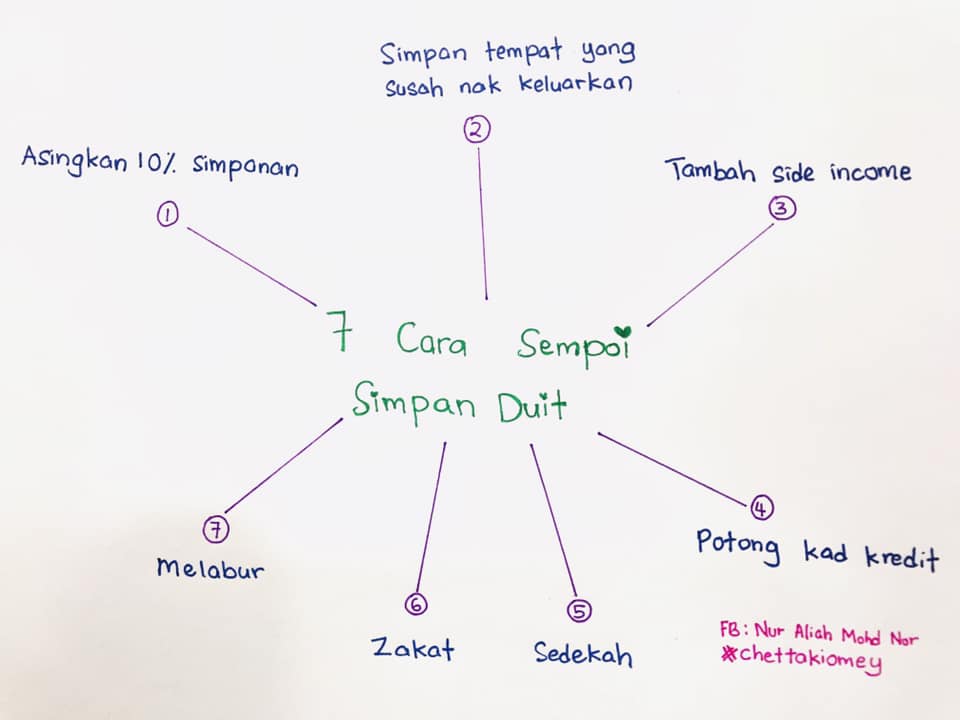 Simpan tempat yang
susah nak keluarkan
2
Asingkan 10% simpanan
1
Tambah side income
3
7 Cara Sempoi
Simpan Duit
4
Potong kad kredit
5
Sedekah
6
Zakat
7
Melabur
FB: Nur Aliah Mohd Nor
#chettakiomey